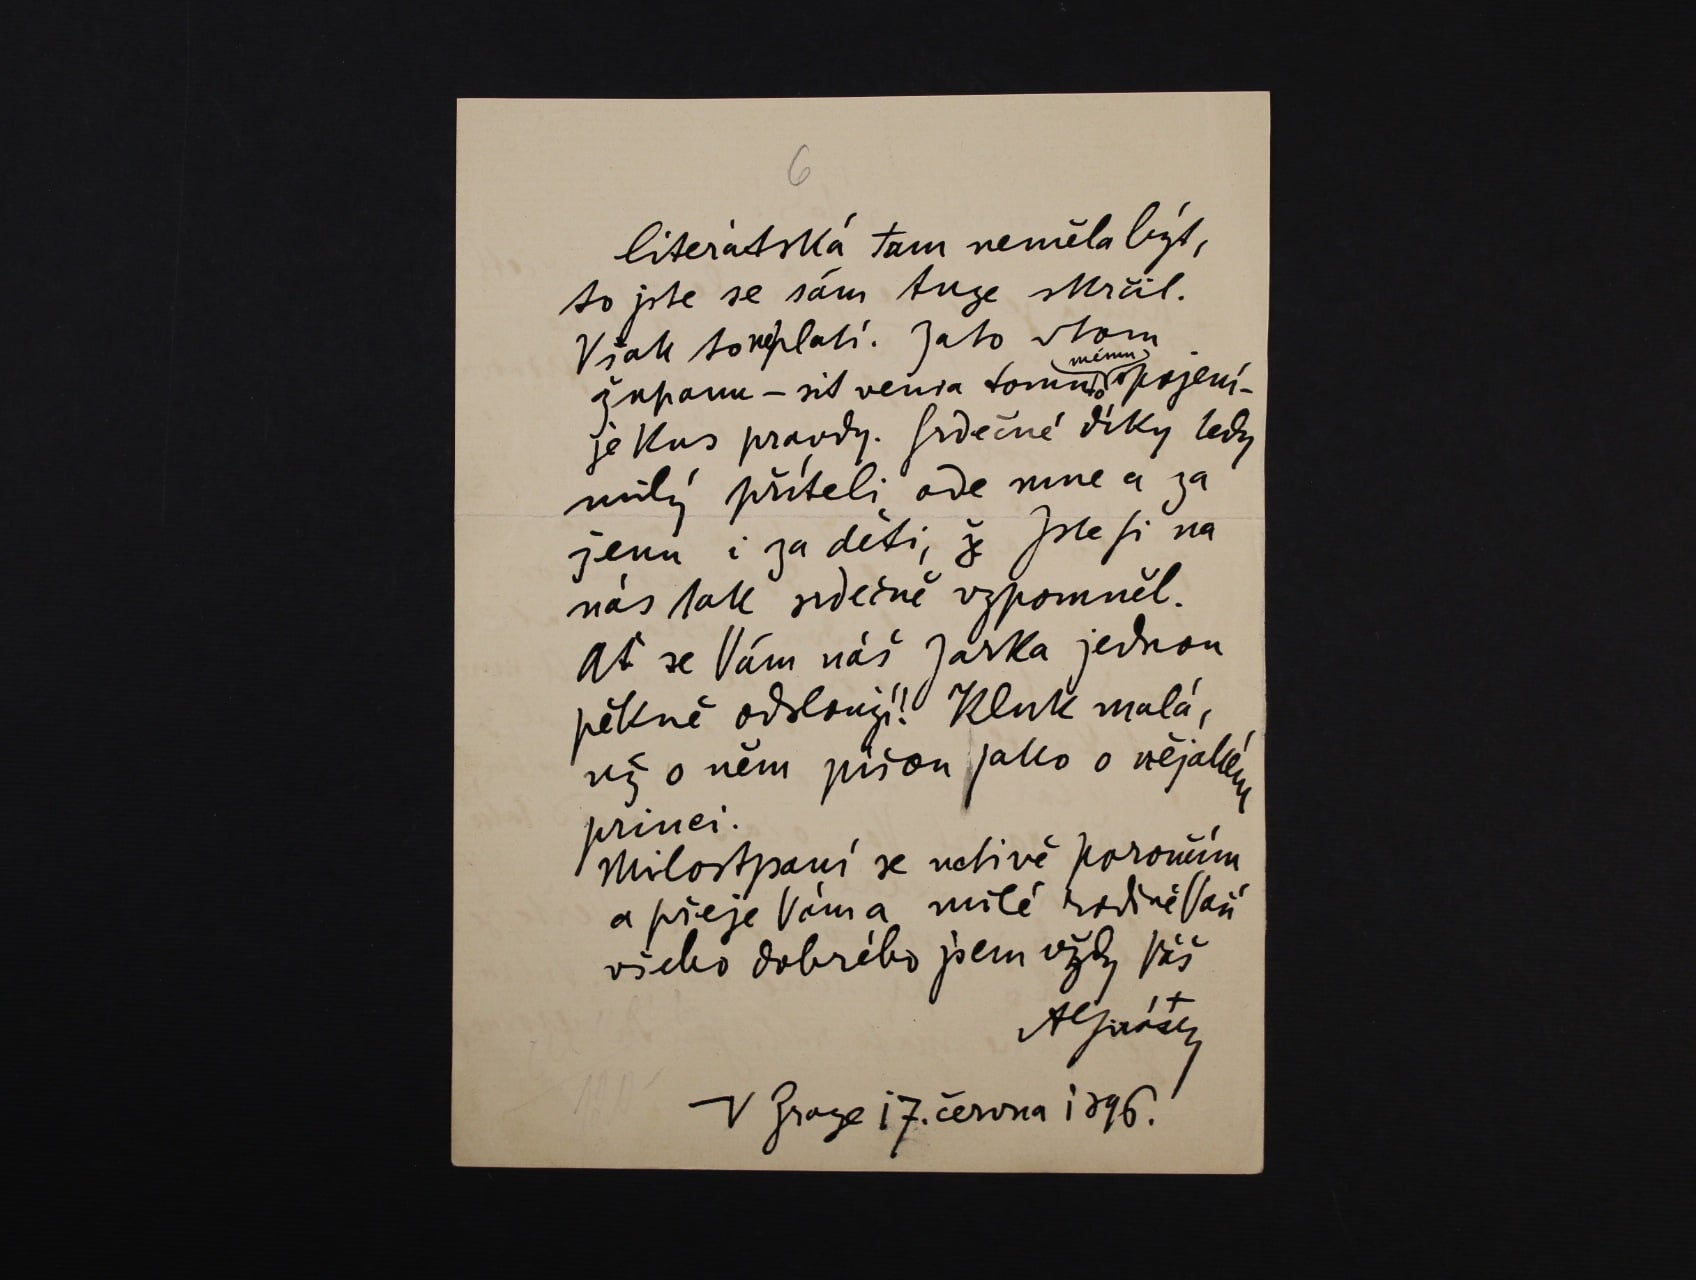 6
literátská tam neměla být,
to jste se sám tuze skrčil.
Však to neplatí. Za to v tom
županu – sit venia tomuto mému spojení –
je kus pravdy. Srdečné díky tedy
milý příteli ode mne a za
ženu i za děti, že jste si na
nás tak srdečně vzpomněl.
Ať se Vám náš Jarka jednou
pěkně odslouží! Kluk malá,
už o něm píšou jako o nějakém
princi.
Milostpaní se uctivě poroučím
a přeje Vám a milé rodině Vaší
všeho dobrého jsem vždy Váš
AJirásek
V Praze 17. června 1896.